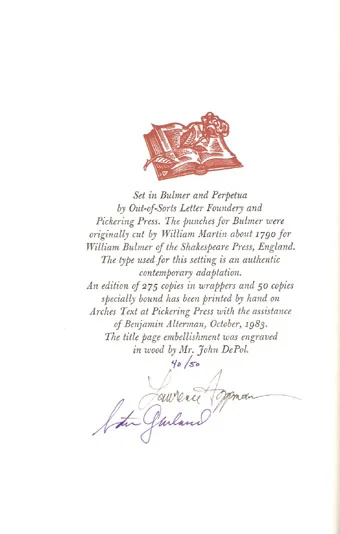 Set in Bulmer and Perpetua
by Out-of-Sorts Letter Foundery and
Pickering Press. The punches for Bulmer were
originally cut by William Martin about 1790 for
William Bulmer of the Shakespeare Press, England.
The type used for this setting is an authentic
contemporary adaptation.
An edition of 275 copies in wrappers and 50 copies
specially bound has been printed by hand on
Arches Text at Pickering Press with the assistance
of Benjamin Alterman, October, 1983.
The title page embellishment was engraved
in wood by Mr. John DePol.
40/50
Lawrence